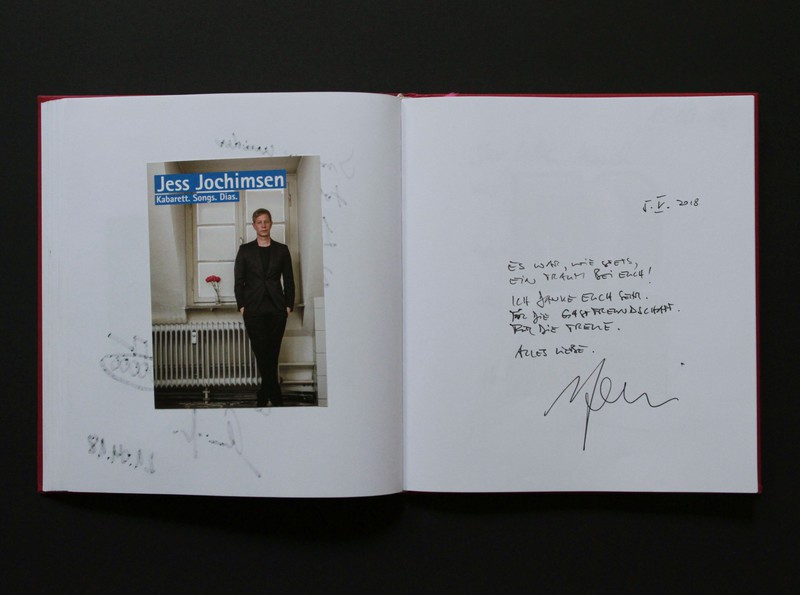 Jess Jochimsen
Kabarett. Songs. Dias.
5.V. 2018
ES WAR, WIE STETS,
EIN TRAUM BEI EUCH!
ICH DANKE EUCH SEHR.
FÜR DIE GASTFREUNDSCHAFT.
FÜR DIE TREUE.
ALLES LIEBE.